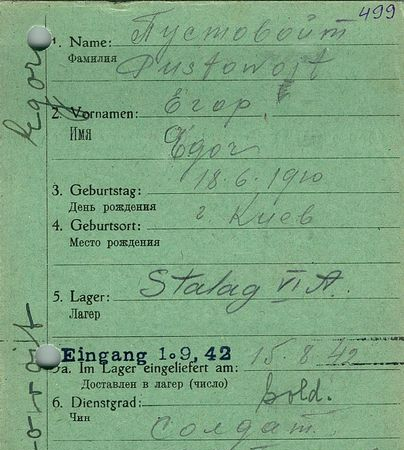 499
1. Name: Пустовойт
Фамилия Pustowojt
2. Vornamen: Егор
Имя Egor
3. Geburtstag: 18.6.1910
День рождения
4. Geburtsort: г. Киев
Место рождения
5. Lager: Stalag VI A.
Лагер
Eingang 1.9.42 15.8.42
5a. Im Lager eingeliefert am:
Доставлен в лагер (число)
6. Dienstgrad: Sold.
Чин солдат
Egor